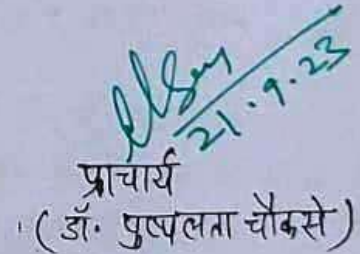 21.9.23
प्राचार्य
(डॉ. पुष्पलता चौकसे)